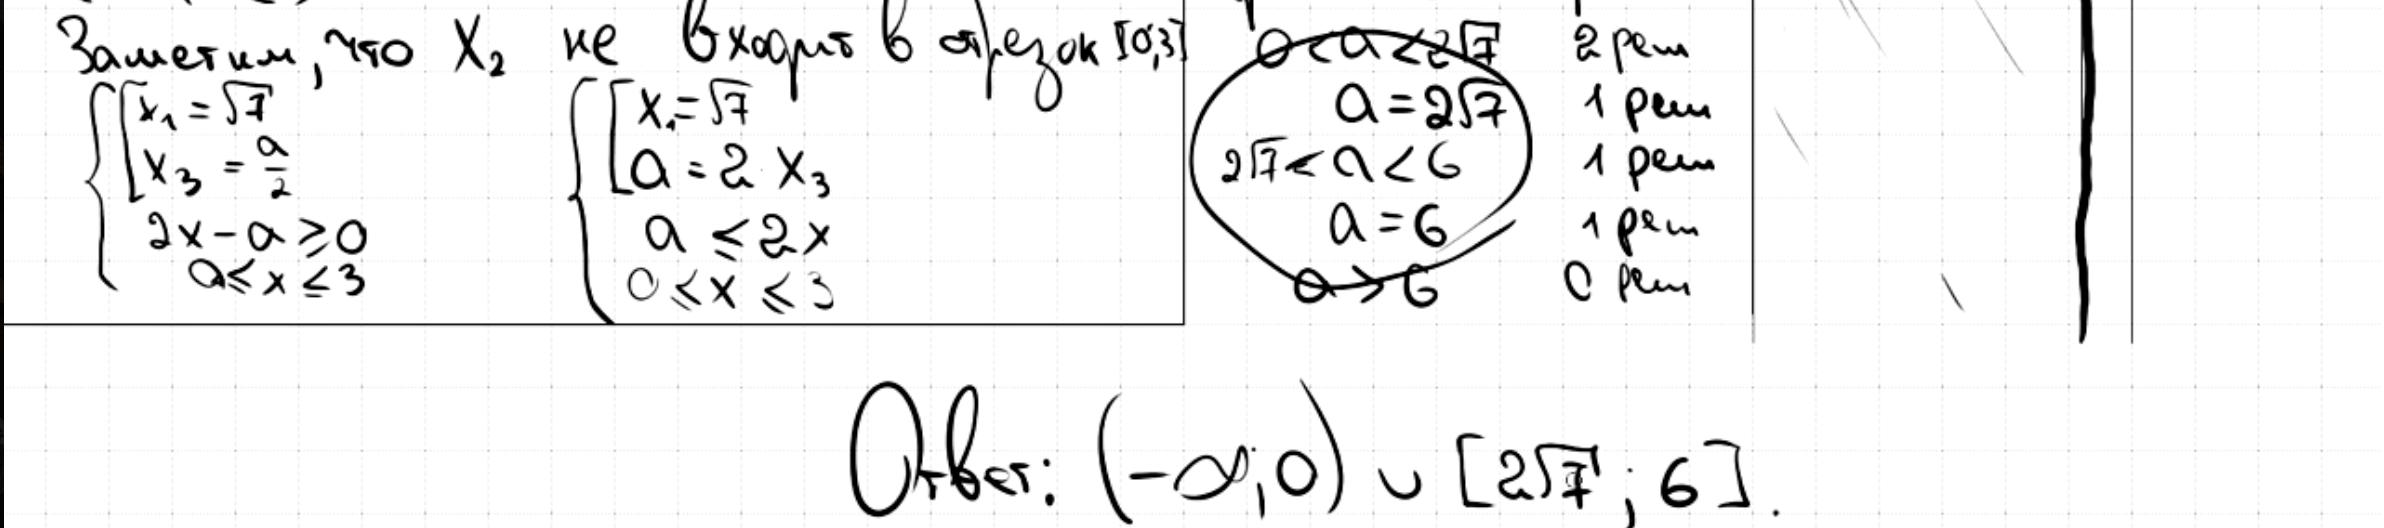 Заметим, что x₂ не входит в отрезок [0;3]
x₁ = √7
x₃ = a/2
2x - a ≥ 0
0 ≤ x ≤ 3
x₁ = √7
a = 2 x₃
a ≤ 2x
0 ≤ x ≤ 3
0 < a < 2√7 2 реш
a = 2√7 1 реш
2√7 < a < 6 1 реш
a = 6 1 реш
a > 6 0 реш
Ответ: (-∞;0) ∪ [2√7; 6].